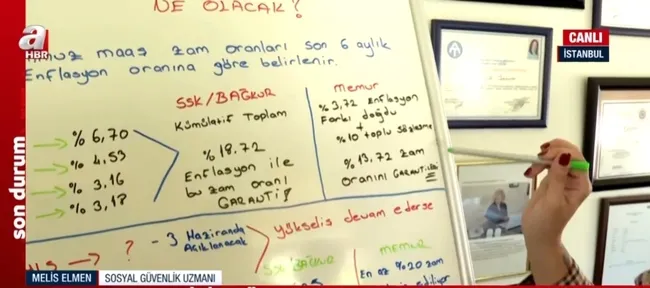 NE OLACAK?
a
HBR
CANLI
İSTANBUL
maaş zam oranları son 6 aylık
Enflasyon oranına göre belirlenir.
SSK/BAĞKUR
Kümülatif Toplam
% 18.72
Enflasyon ile
bu zam oranı
GARANTİ
MEMUR
% 3,72 Enflasyon
Farkı doğdu
+
% 10 toplu sözleşme
% 13,72 zam
oranını GARANTİLEDİ
% 6,70
% 4,53
% 3,16
% 3,18
son durum
? - 3 Haziranda
Açıklanacak
yükseliş devam ederse
SSK BAĞKUR
MEMUR
En az %20 zam
MELİS ELMEN
SOSYAL GÜVENLİK UZMANI